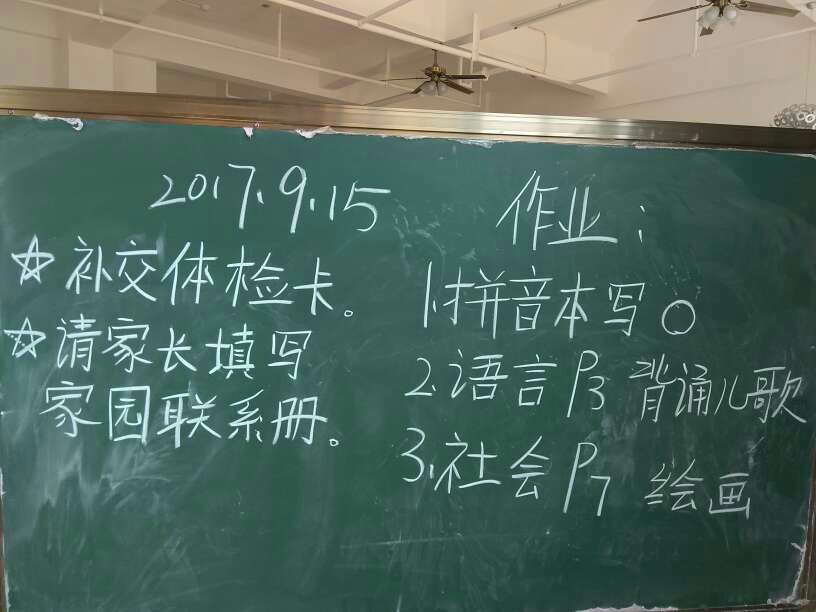 2017.9.15
☆补交体检卡。
☆请家长填写
家园联系册。
作业:
1.拼音本写o
2.语言P3 背诵儿歌
3.社会P7 绘画